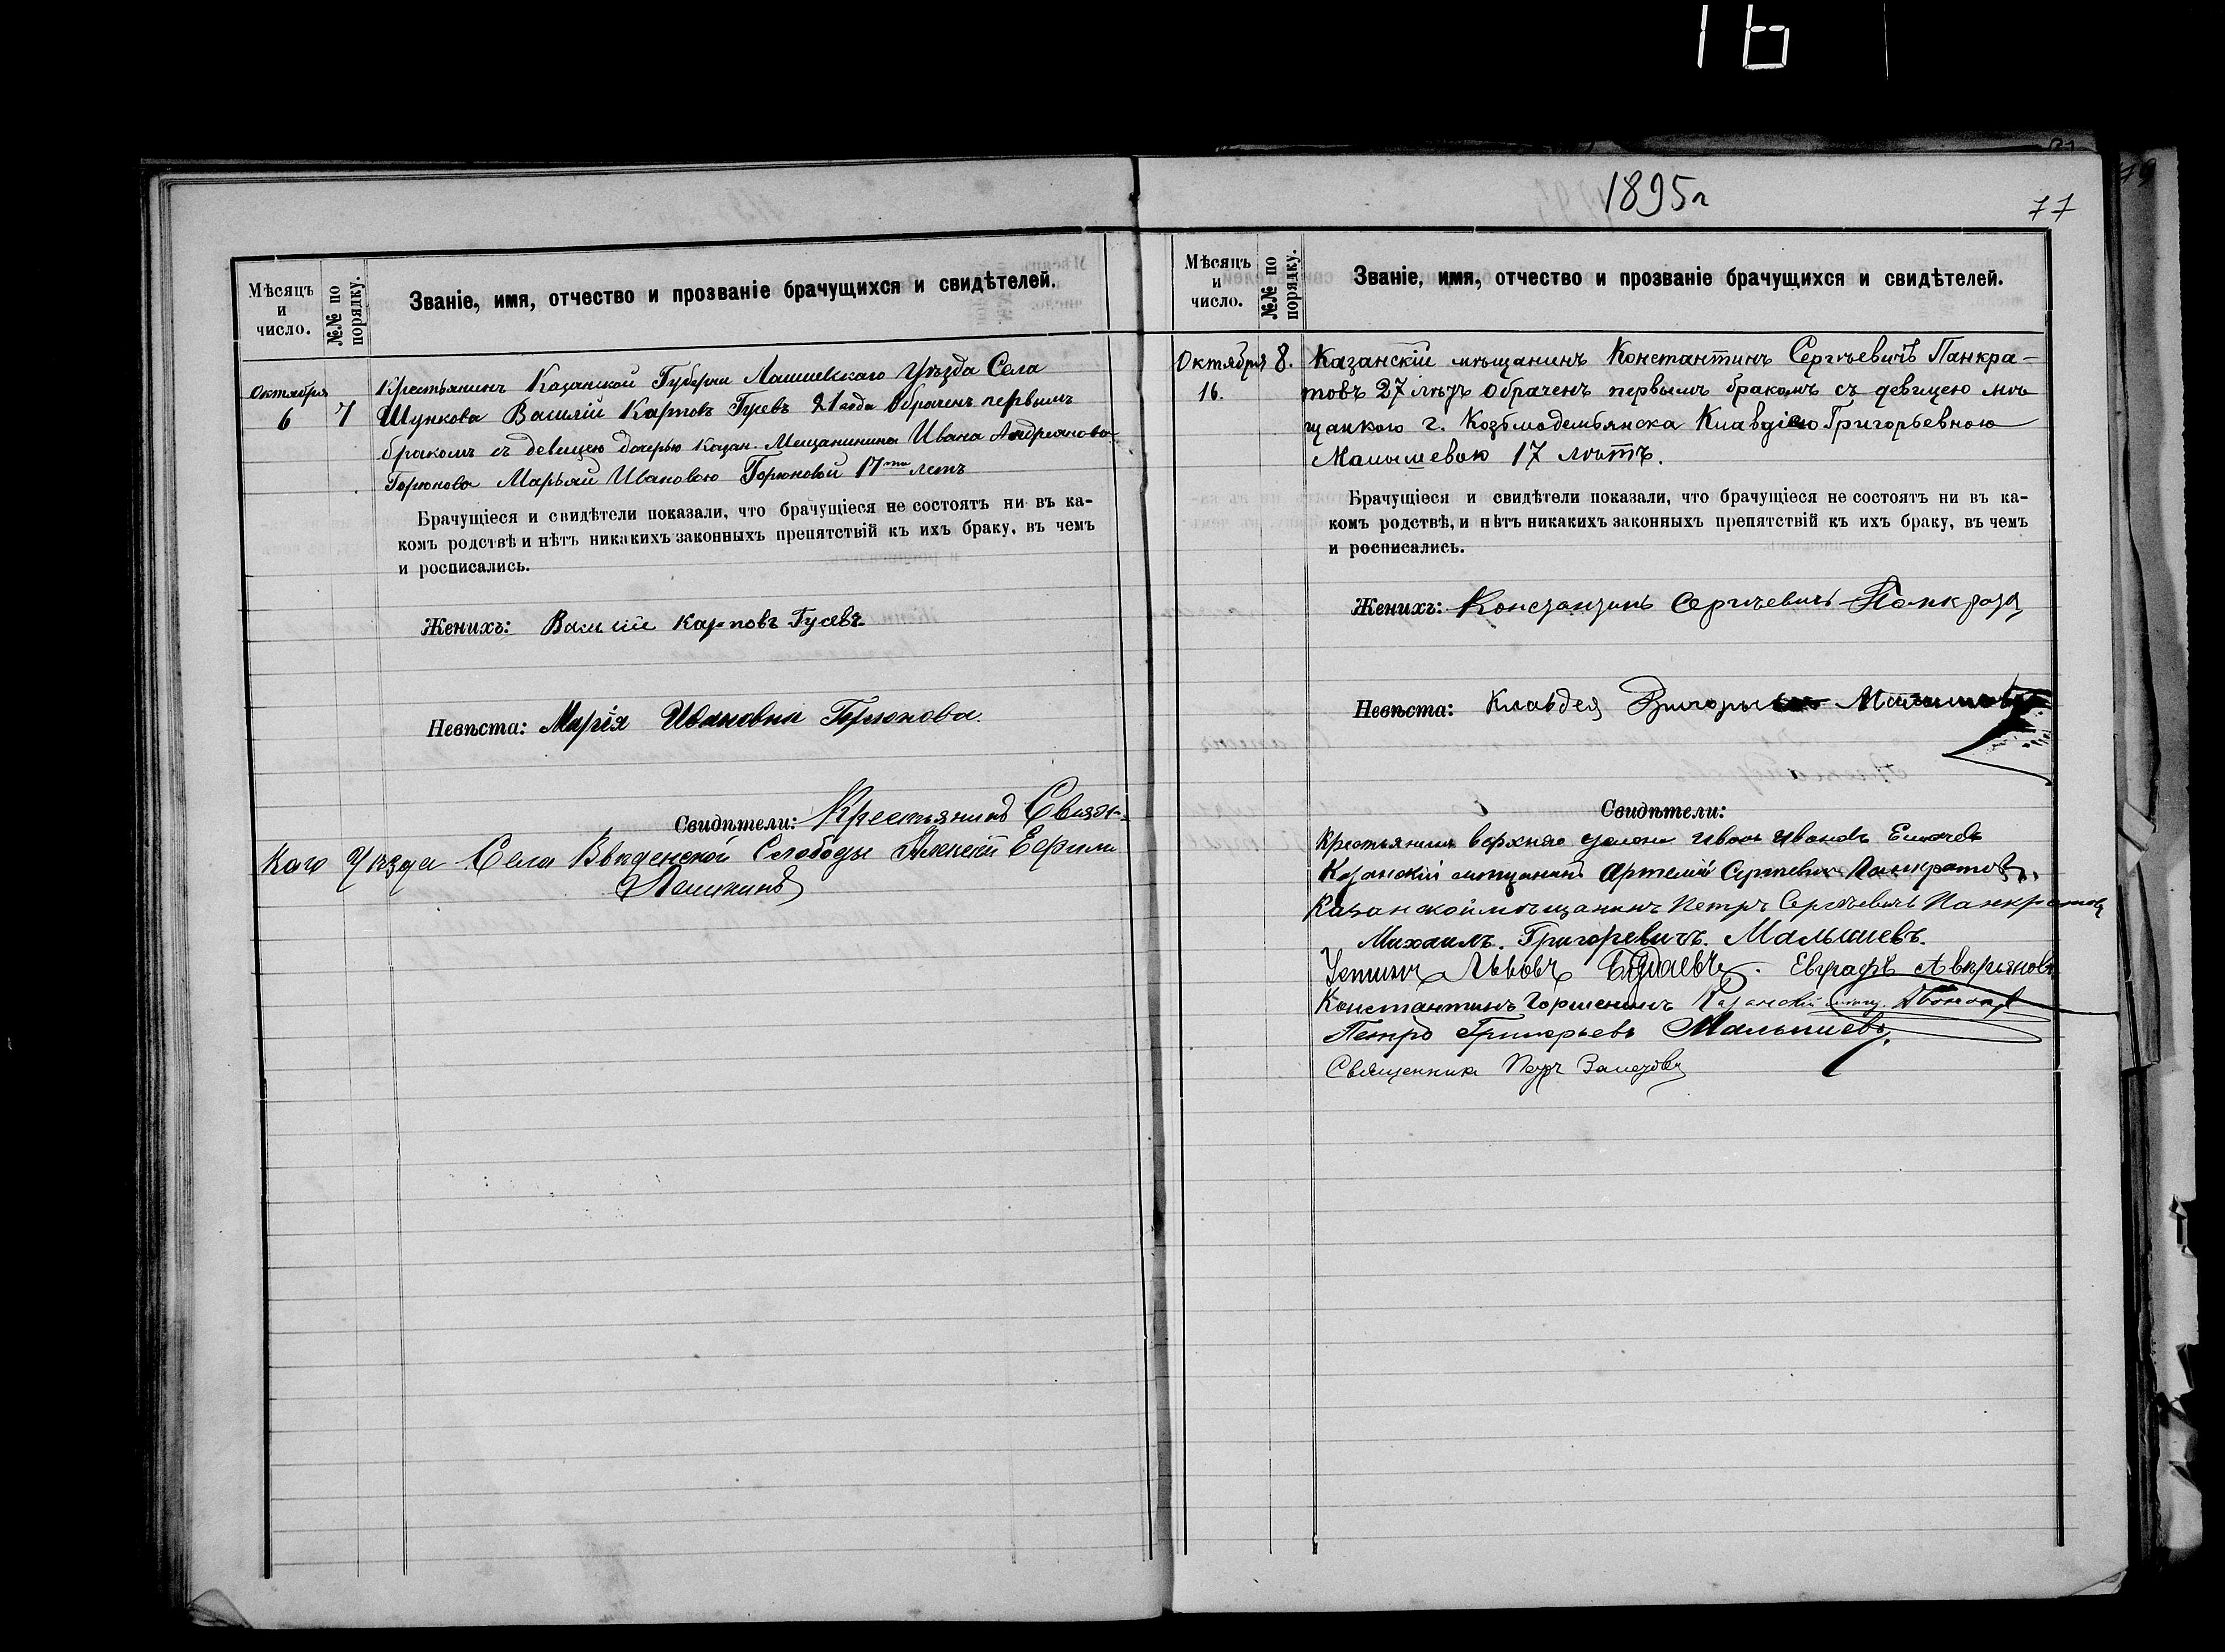 16
1895г
77
Мѣсяцъ и число.
№№ по порядку.
Званіе, имя, отчество и прозваніе брачущихся и свидѣтелей.
Октября 6
7
Крестьянинъ Казанской Губерни Лаишевскаго Уѣзда Села
Шункова Василій Карповъ Гусевъ 21 года Обраченъ первымъ
бракомъ съ девицею дочерью Казан. Мещанинина Ивана Андреянова
Горюнова Марьяй Ивановою Горюновой 17ти летъ
Брачущіеся и свидѣтели показали, что брачущіеся не состоятъ ни въ ка-
комъ родствѣ и нѣтъ никакихъ законныхъ препятствій къ ихъ браку, въ чемъ
и росписались.
Женихъ: Василій Карповъ Гусевъ
Невѣста: Марія Ивановна Горюнова.
Свидѣтели: Крестьянинъ Свіяж-
каго Уѣзда Села Введенской Слободы Алексей Ефим
Лешкинъ
Мѣсяцъ и число.
№№ по порядку.
Званіе, имя, отчество и прозваніе брачущихся и свидѣтелей.
Октября 16.
8.
Казанскій мѣщанинъ Константинъ Сергѣевичъ Панкра-
товъ 27 лѣтъ обраченъ первымъ бракомъ съ девицею мѣ
щанкою г. Козьмодемьянска Клавдіею Григорьевною
Малышевою 17 лѣтъ.
Брачущіеся и свидѣтели показали, что брачущіеся не состоятъ ни въ ка-
комъ родствѣ, и нѣтъ никакихъ законныхъ препятствій къ ихъ браку, въ чемъ
и росписались.
Женихъ: Константинъ Сергѣевичъ Панкратов
Невѣста: Клавдея
Свидѣтели:
Крестьянинъ верхняго услона Иванъ Ивановъ
Казанскій мѣщанинъ Артемій Сергѣевич Панкратовъ
Казанскоймѣщанинъ Петръ Сергѣевичъ Панкратовъ
Михаилъ. Григоревичъ. Малышевъ.
Устинъ Львовъ Евграфъ Авкряновъ
Константинъ Горшенинъ Казанскій мѣщ.
Петръ Григорьевъ Малышевъ.
Священника Петръ Залетовъ